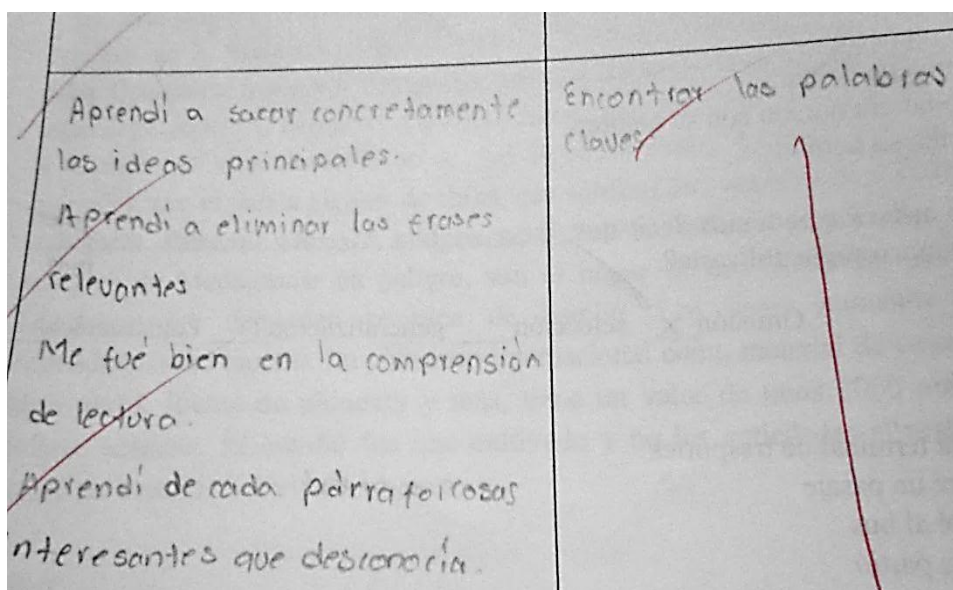 Aprendí a sacar concretamente
las ideas principales.
Aprendí a eliminar las frases
relevantes
Me fué bien en la comprensión
de lectura.
Aprendí de cada párrafo cosas
interesantes que desconocía.
Encontrar las palabras
claves